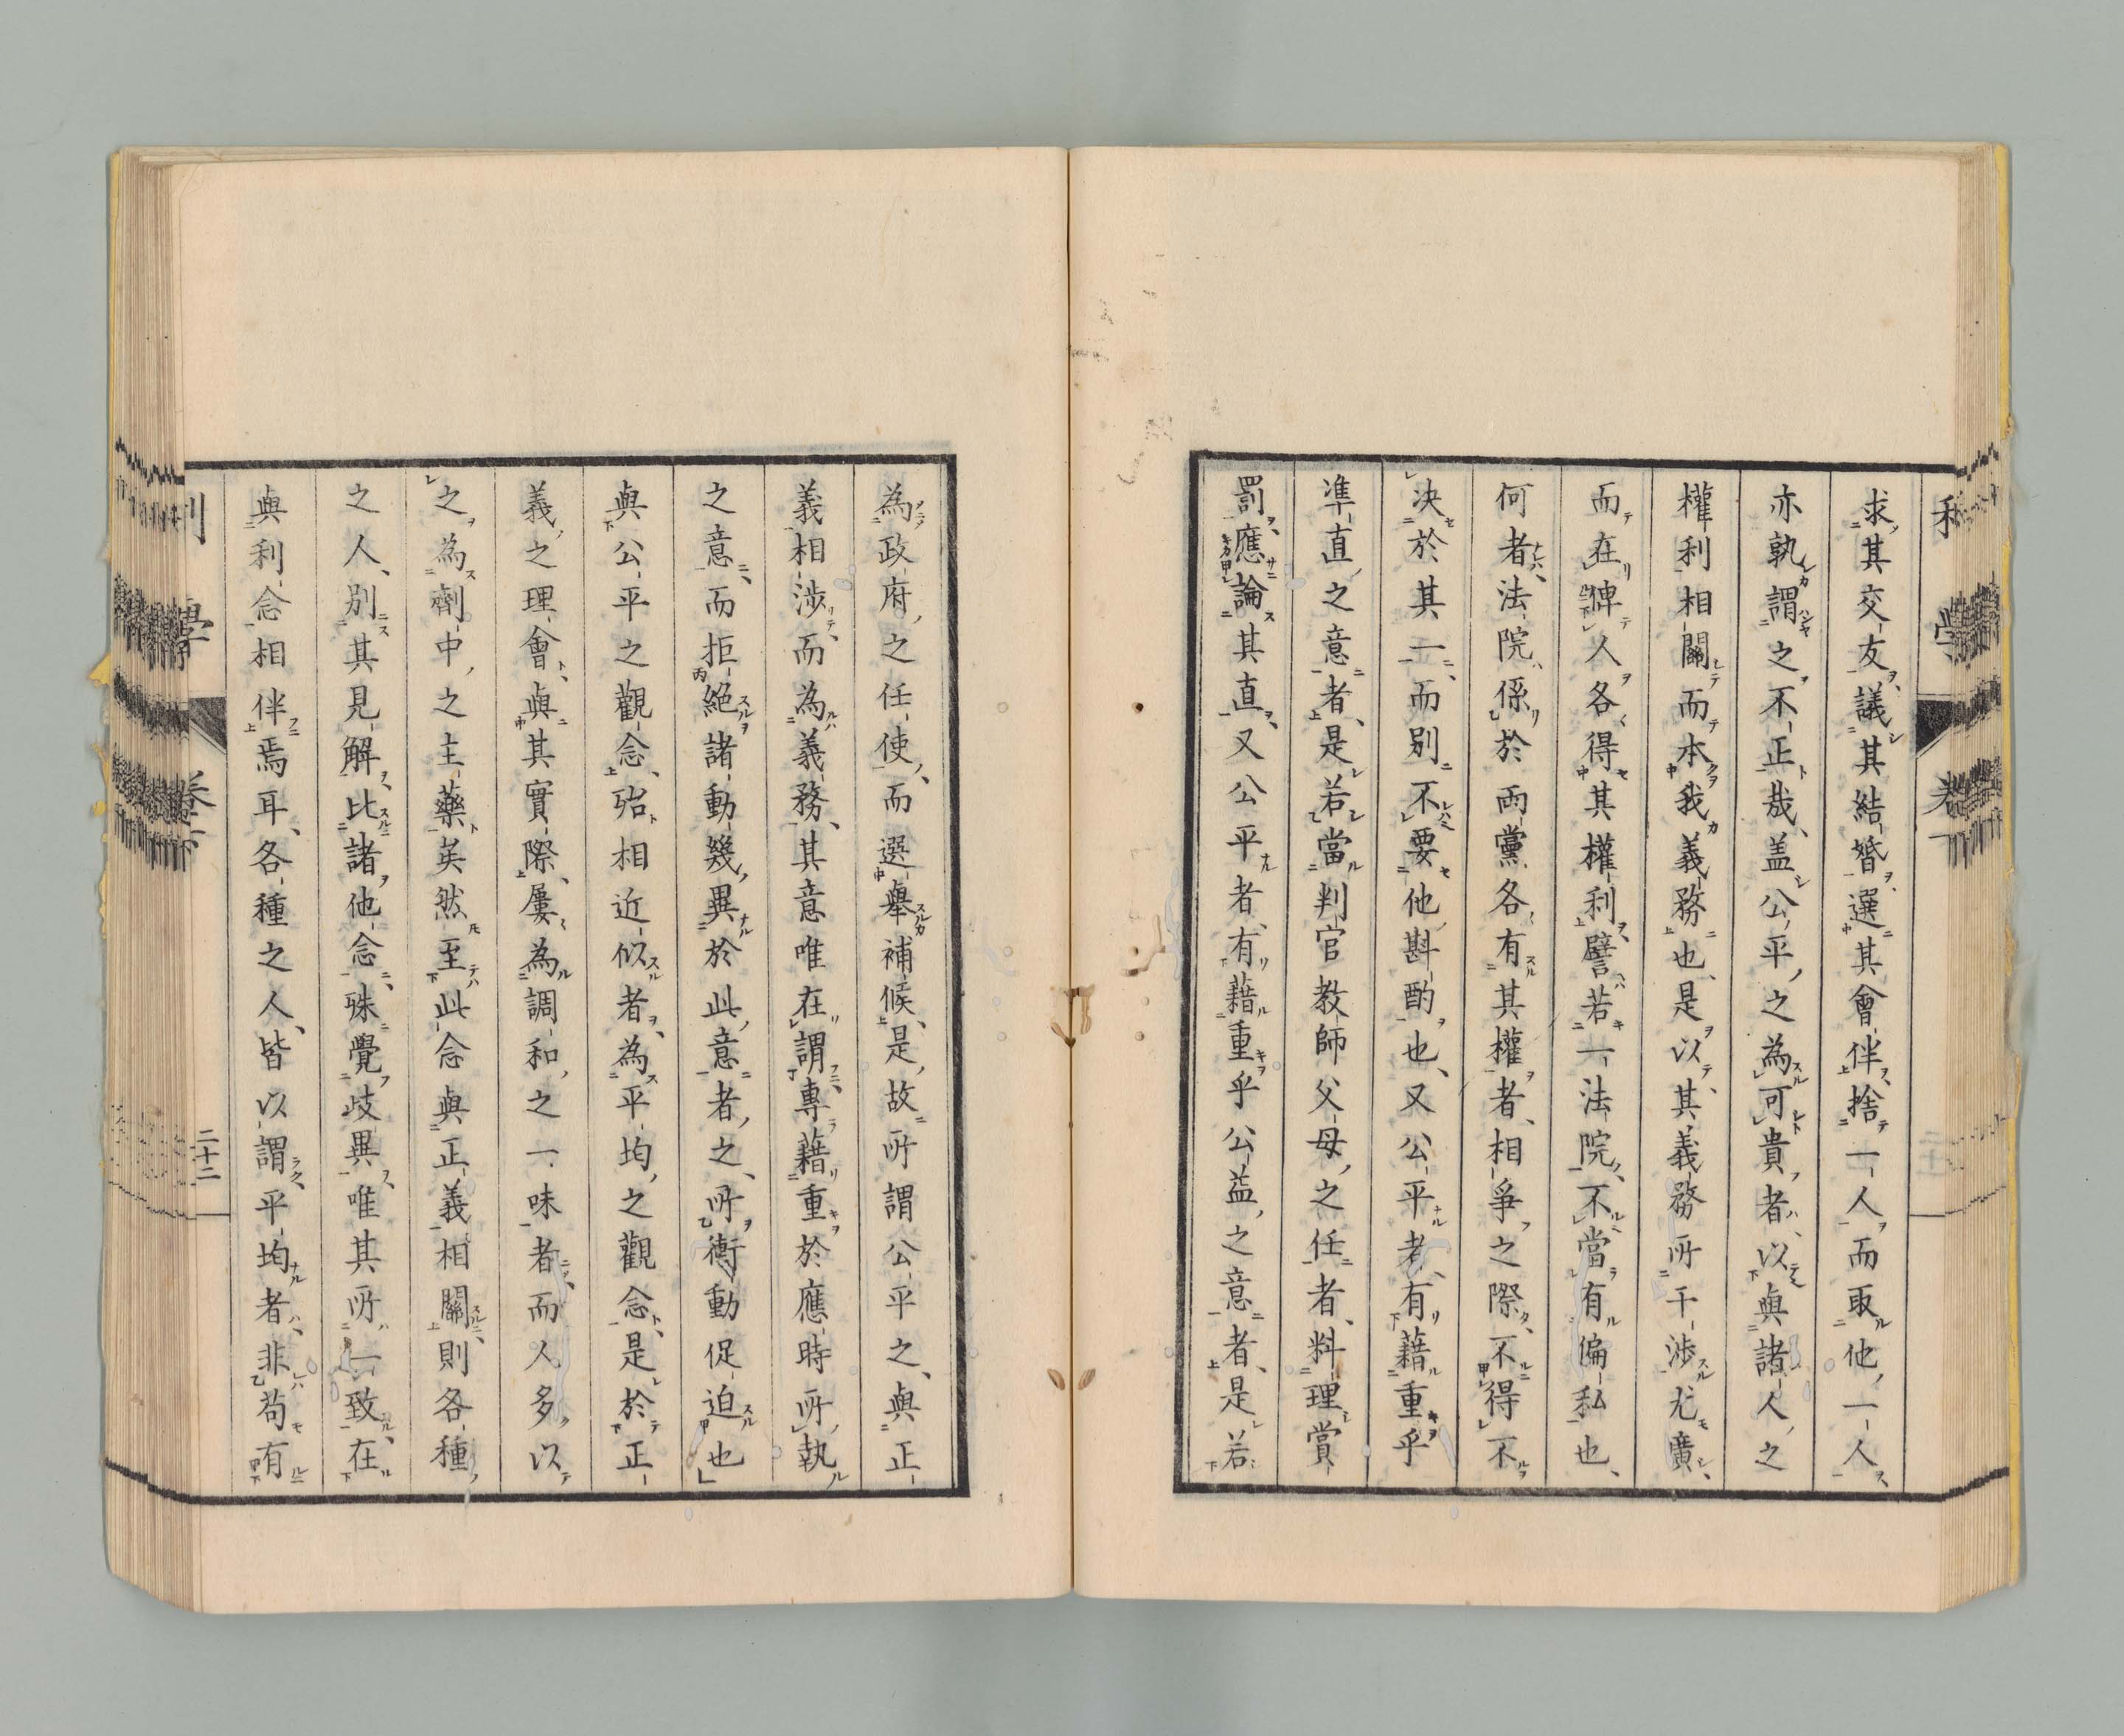 求其交友議其結婚選其會伴捨一人而取他一人
亦孰謂之不正哉、盖公平之為可貴者以與諸人之
權利相關而本我義務也、是以其義務所干渉尤廣
而在俾人各得其權利譬若一法院不當有偏私也、
何者法院係於兩黨各有其權者、相爭之際不得不
決於其一而別不要他斟酌也、又公平者、有藉重乎
準直之意者、是若當判官教師父母之任者、料理賞
罰應論其直又公平者、有藉重乎公益之意者、是若
為政府之任使而選舉補候是故所謂公平之與正
義相渉而為義務、其意唯在謂專藉重於應時所執
之意而拒絕諸動幾異於此意者之所衝動促迫也」
與公平之觀念、殆相近似者為平均之觀念是於正
義之理會與其實際屢為調和之一味者而人多以
之為劑中之主藥矣然至此念與正義相關則各種
之人、別其見解比諸他念殊覺歧異唯其所一致在
與利念相伴焉耳、各種之人、皆以謂平均者非苟有
利學 卷下
二十二